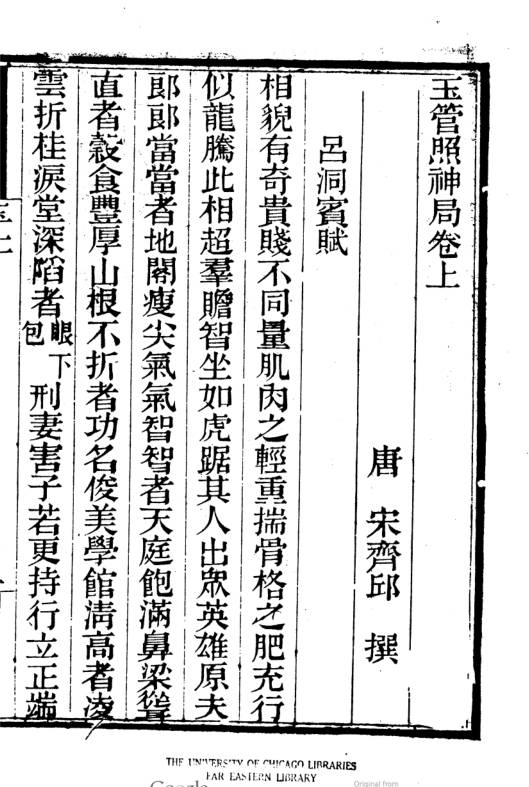 玉管照神局卷上
唐 宋齊邱 撰
呂洞賓賦
相貌有奇貴賤不同量肌肉之輕重揣骨格之肥充行
似龍騰此相超羣贍智坐如虎踞其人出眾英雄原夫
郎郎當當者地閣瘦尖氣氣智智者天庭飽滿鼻梁聳
直者穀食豐厚山根不折者功名俊美學館清高者凌
雲折桂淚堂深陷者眼下包刑妻害子若更持行立正端
THE UNIVERSITY OF CHICAGO LIBRARIES
FAR EASTERN LIBRARY
Google
Original from